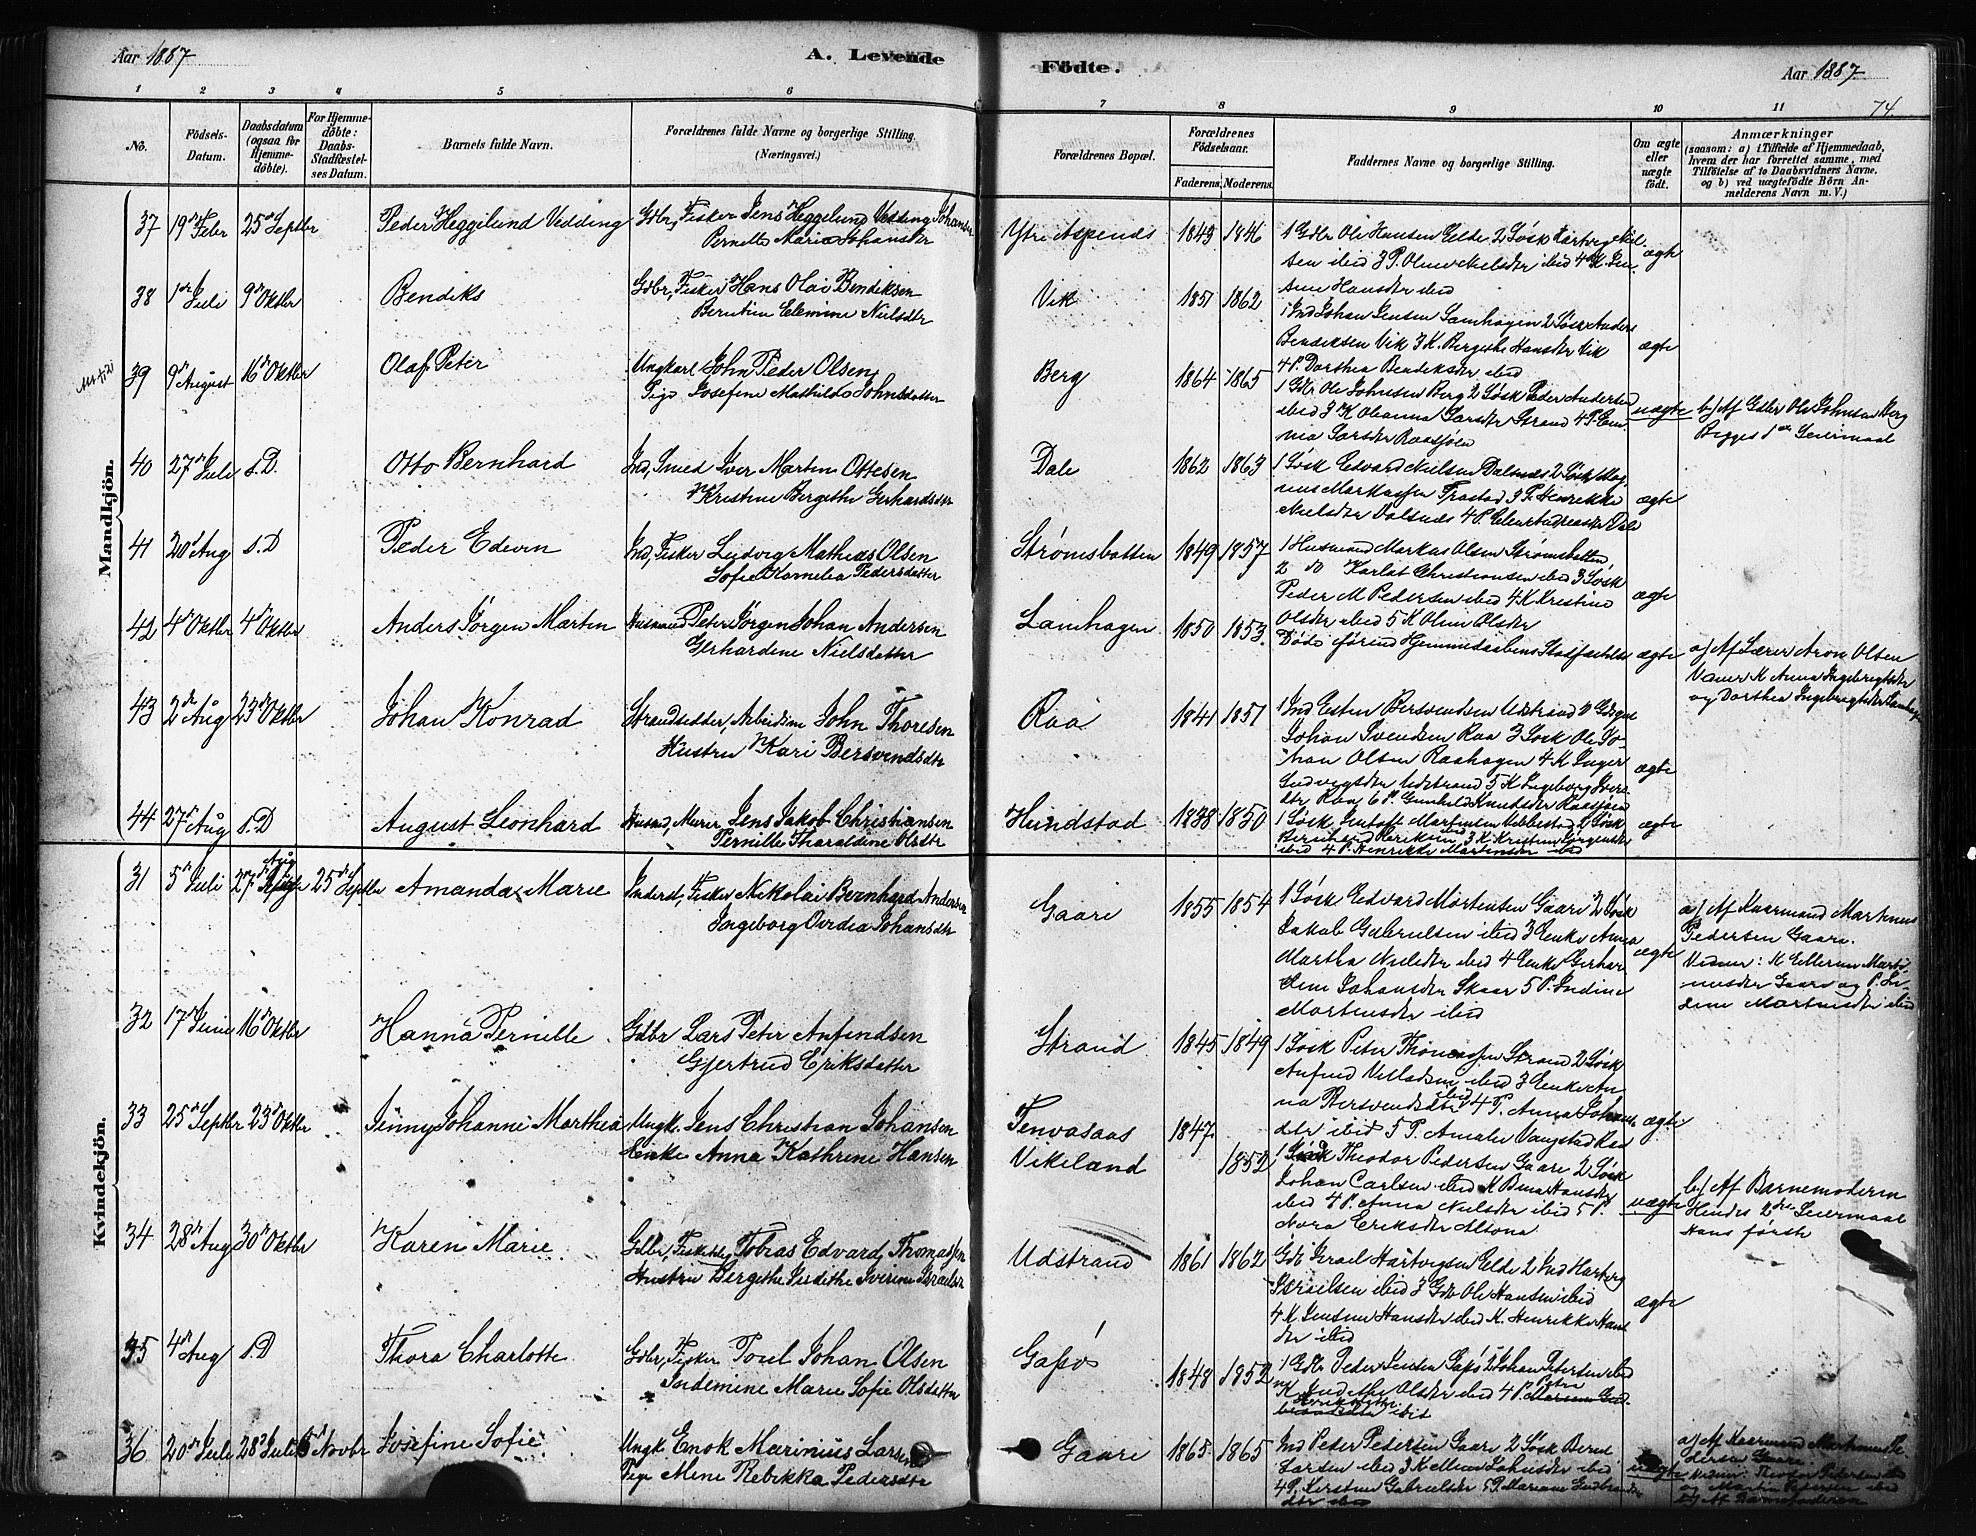 Aar 1887
A. Levende
Födte.
Aar 1887
74.
1 2 3 4 5 6 7 8 9 10 11
No.
Födsels-
Datum.
Daabsdatum
(ogsaa for
Hjemme-
döbte).
For Hjemme-
döbte:
Daabs-
Stadfæstel-
ses Datum.
Barnets fulde Navn.
Forældrenes fulde Navne og borgerlige Stilling.
(Næringsvei.)
Forældrenes Bopæl.
Forældrenes
Födselsaar.
Faderens. Moderens.
Faddernes Navne og borgerlige Stilling.
Om ægte
eller
uægte
födt.
Anmærkninger
(saasom: a) i Tilfælde af Hjemmedaab,
hvem der har forrettet samme, med
Tilföielse af to Daabsvidners Navne,
og b) ved uægtefödte Börn An-
melderens Navn m. V.)
Mandkjön.
37 19de Febr 25de Septbr Peder Heggelund Vedding Gdbr, Fisker Jens Heggelund Vedding Johansen
Pernelle Maria Johansdtr
Ytre Aspenes 1843 1846
1 Gdbr Ole Hansen Elde 2 Løsk Hartvig
ibid 3 P. Oline Nielsdtr ibid 4 K
Hansdtr ibid
ægte
38 1ste Juli 9de Oktbr Bendiks Gdbr, Fisker Hans Olai Bendiksen
Elemine Nielsdtr
Vik 1851 1862
1 Ind Johan Jensen Lamhagen 2 Løsk Anders
Bendiksen Vik 3 K. Bergethe Hansdtr Vik
4 P. Dorthea Bendiksdtr ibid
ægte
39 9de August 16de Oktbr Olaf Peter Ungkarl John Peder Olsen,
Pige Josefine Mathilde Johnsdatter
Berg 1864 1865
1 Gdbr Ole Johnsen Berg 2 Løsk Peder Andersen
ibid 3 K Olianna Larsdtr Strand 4 P.
Larsdtr Raasjøen
uægte
b.) Af Gdbr Ole Johnsen Berg
Begges 1ste Leiermaal
40 27de Juli s.D. Otto Bernhard Ind, Smed Iver Martin Ottesen
Kristine Bergethe Gerhardsdtr
Dale 1862 1863
1 Løsk Edvard Nielsen Dalsnes 2 Løsk Mag
nus Markussen Trastad 3 P. Henrikke
Nielsdtr Dalsnes 4 P. Dale
ægte
41 20de Aug s.D Peder Edvin Ind, Fisker Ludvig Mathias Olsen
Sofie Kornelia Pedersdatter
Strømsbotten 1849 1857
1 Husmand Markus Olsen Strømsbotten
2 do Karlot Christiansen ibid 3 Løsk
Peder M Pedersen ibid 4 K Kristine
Olsdtr ibid 5 K Oline Olsdtr
ægte
42 4de Oktbr 4de Oktbr Anders Jørgen Martin Husmand Peter Jørgen Johan Andersen
Gerhardine Nielsdatter
Lamhagen 1850 1853.
Døde førend Hjemmedaabens Stadfæstelse
ægte
a) Af Lærer Aron Olsen
Vidner K Anna Ingebrigtsdtr
og Dorthea Ingebrigtsdtr Lamhagen
43 2de Aug 23de Oktbr Johan Konrad Strandsidder, Arbeidsm John Thoresen
Hustru Kari Bersvendsdtr
Raa 1841 1851
1 Ind Esten Bersvendsen Udstrand
Johan Svendsen Raa 3 Løsk Ole Jo-
han Olsen Raahagen 4 K Inger
Ludvigsdtr Udstrand 5 K Ingeborg Ivers
dtr Raa 6 P. Gunhild Knudsdtr Raasjøen
ægte
44 27de Aug s.D August Leonhard Husmd, Murer, Jens Jakob Christiansen
Pernille Tharaldine Olsdtr
Hundstad 1838 1850
1 Løsk Martinsen Vebbestad 2 Løsk
ibid 3 K. Kristine Jørgensdtr
ibid 4 P. Henrikke Martinsdtr ibid
ægte
Kvindekjön.
31 5de Juli 27de Aug 25de Septbr Amanda Marie Inderst, Fisker Nikolai Bernhard Andersen
Ingeborg Ovidia Johansdtr
Gaare 1855 1854
1 Løsk Edvard Mortensen Gaare 2 Løsk
Jakob Gabrielsen ibid 3 Enke Anna
Martha Nielsdtr ibid 4 Enke Gerhar
dine Johansdtr Skaar 5 P. Indine
Mortensdtr ibid
ægte
a) Af Kaarmand Martinus
Pedersen Gaare.
Vidner: K Ellerine Marti-
nusdtr Gaare og P. In-
dine Martinusdtr ibid
32 17de Juni 16de Oktbr Hanna Pernille Gdbr Lars Peter Anfindsen
Gjertrud Eriksdatter
Strand 1845 1849
1 Løsk Peter Thomassen Strand 2 Løsk
Anfind Villadsen ibid 3 Enke An
na Bersvendsdtr ibid 4 P. Anna Johans
dtr ibid 5 P. Amalie Vangstad
ægte
33 25de Septbr 23de Oktbr Jenny Johanne Marthea Ungk. Jens Christian Johansen
Enke Anna Kathrine Hansen
Tenvasaas
Vikeland
1847. 1852
1 Løsk Theodor Pedersen Gaare 2 Løsk
Johan Carlsen ibid K Hansdtr
ibid 4 P. Anna Nielsdtr ibid 5 P.
Nora Eriksdtr Altona
uægte
b.) Af Barnemoderen
Hendes 2det Leiermaal
Hans første
34 28de Aug 30de Oktbr Karen Marie Gdbr, Fisker Tobias Edvard Thomassen
Hustru Bergithe Judithe Iverine Israelsdtr
Udstrand 1861 1862
Gdb Israel Hartvigsen Elde 2 Ind Hartvig
Israelsen ibid 3 Gdb Ole Hansen ibid
4 K Jensine Hansdtr ibid K. Henrikke Hans
dtr ibid
ægte
35 4de Aug s.D Thora Charlotte Gdbr, Fisker Poul Johan Olsen
Indemine Marie Sofie Olsdatter
Gasvø 1848 1852
1 Gdbr Peder Jensen 2 Johan Petersen ibid
K Judithe Olsdtr ibid 4 P.
ibid
36 20de Juli 28de Juli Novbr Josefine Sofie Ungk. Enok Marinius Larsen
Pige Mine Rebekka Pedersdtr
Gaare 1865 1865
Ind Peter Pedersen Gaare 2 Løsk Berent
Larsen ibid 3 K Johnsdtr ibid
4 P. Kirstine Gabrielsdtr 5 P. Mariane
dtr ibid
uægte
a) Af Kaarmand Martinus Pe
dersen Gaare.
Vidner: Theodor Pedersen
og Martin Pedersen ibid
b) Af Barnefaderen